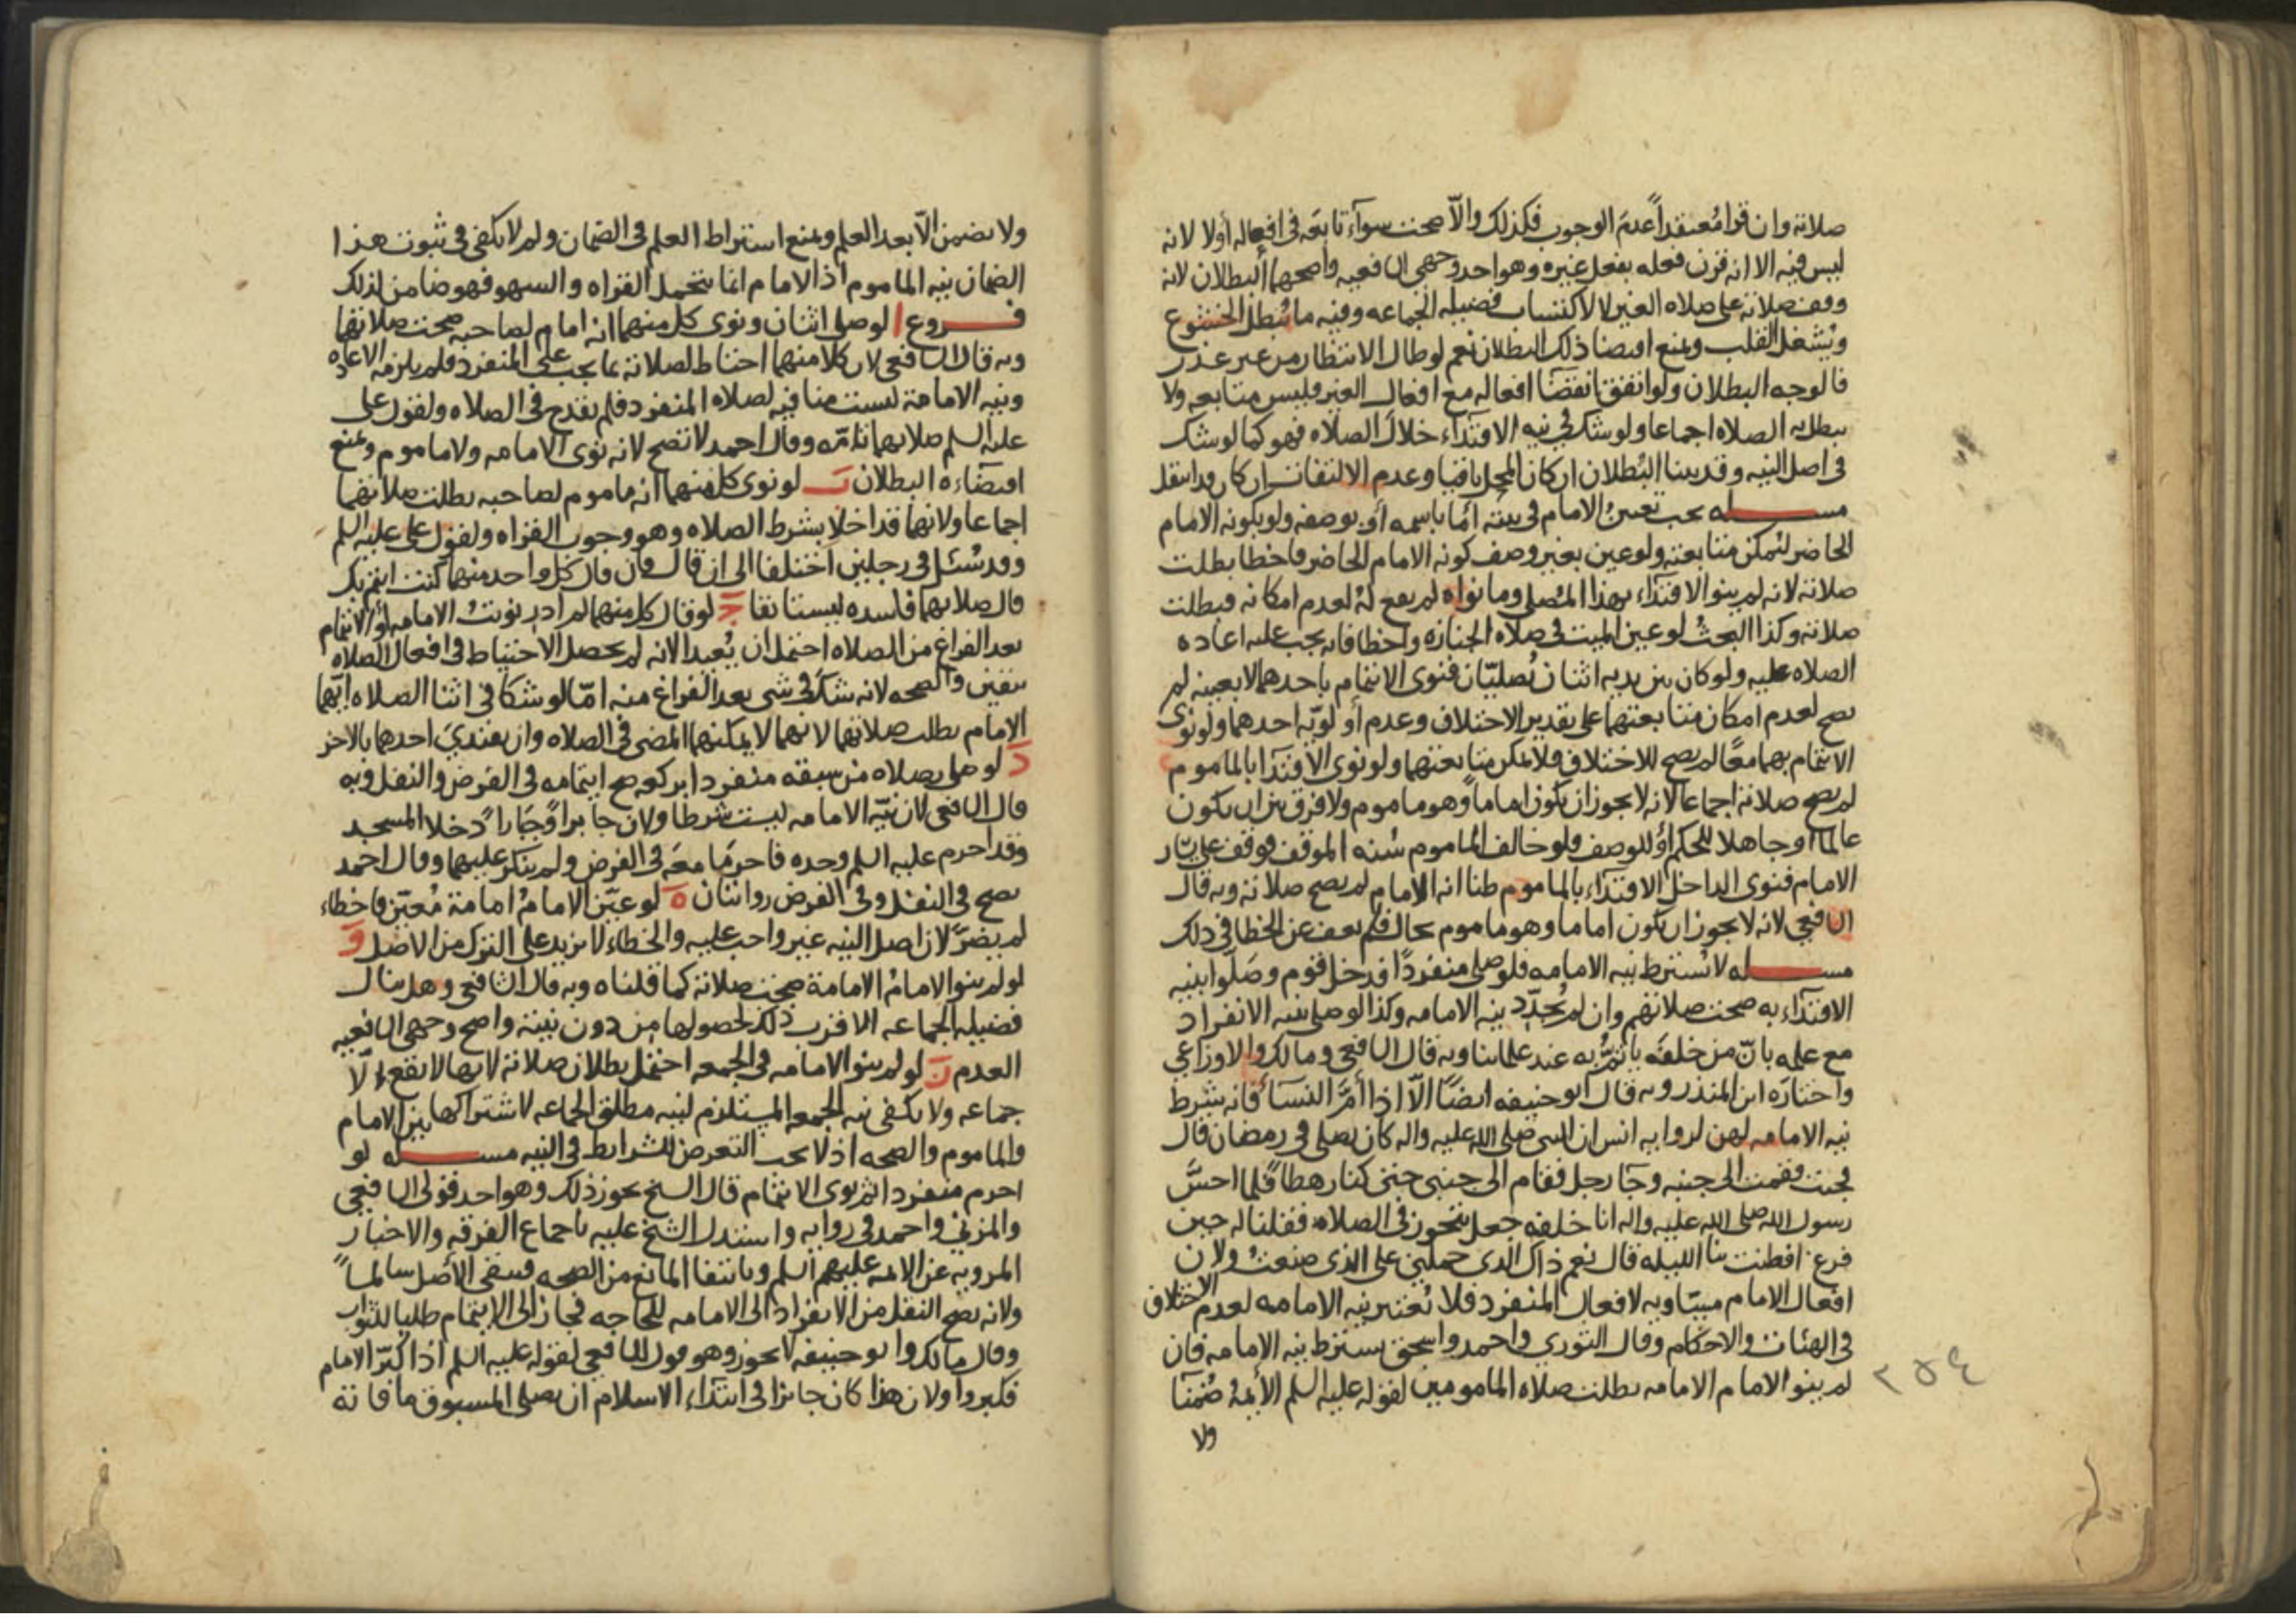 صلاته وان قرا معتقداً عدم الوجوب فكذلك والّا صحت سوآء تابعه فى افعاله أولا لانه
ليس فيه الا انه قرن فعله بفعل غيره وهو احد وجهى الشافعيه واصحهما البطلان لانه
وقف صلاته على صلاه الغير لا لاكتساب فضيله الجماعه وفيه ما يُبطل الخشوع
ويُشغل القلب ونمنع اقتضا ذلك البطلان نعم لو طال الانتظار من غير عذر
فالوجه البطلان ولو اتفق انقضآ افعاله مع افعال الغير فليس متابعه ولا
يبطل به الصلاه اجماعا ولو شك فى نيه الاقتدآء خلال الصلاه فهو كما لو شك
فى اصل النيه وقد بينا البُطلان ان كان المحل باقيا وعدم الالتفات ان كان قد انتقل
مسله يجب تعيين الامام فى نيته امّا باسمه أو بوصفه ولو بكونه الامام
الحاضر ليمكن متابعته ولو عين بغير وصف كونه الامام الحاضر فاخطا بطلت
صلاته لانه لم ينو الاقتدآء بهذا المُصلى وما نواه لم يقع لهُ لعدم امكانه فبطلت
صلاته وكذا البحثُ لو عين الميت فى صلاه الجنازه واخطا فانه يجب عليه اعاده
الصلاه عليه ولو كان بين يديه اثنان يُصليّان فنوى الائتمام باحدهما لا بعينه لم
يصح لعدم امكان متابعتهما على تقدير الاختلاف وعدم أولويّه احدهما ولو نوى
الائتمام بهما معًا لم يصح للاختلاف فلا يمكن متابعتهما ولو نوى الاقتدآ بالماموم
لم يصح صلاته اجماعا لانه لا يجوز ان يكون اماماً وهو ماموم ولا فرق بين ان يكون
عالما اوجاهلا للحكم أو للوصف فلو خالف الماموم سُنه الموقف فوقف على يسار
الامام فنوى الداخل الاقتدآء بالماموم ظنا انه الامام لم يصح صلاته وبه قال
الشافعي لانه لا يجوز ان يكون اماما وهو ماموم بحال فلم يعف عن الخطا فى ذلك
مسله لا يُشترط نيه الامامه فلو صلى منفردًا فدخل قوم وصَلّوا بنيه
الاقتدآء به صحت صلاتهم وان لم يُجدّد نيه الامامه وكذا لو صلى بنيه الانفراد
مع علمه بانّ من خلفه يأتمُّ به عند علمائنا وبه قال الشافعي ومالك والاوزاعي
واختارَه ابن المنذر وبه قال أبو حنيفه ايضًا الّا اذا أمَّ النسآء فانه شرط
نيه الامامه لهن لروايه انس ان النبى صلى الله عليه واله كان يصلى فى رمضان قال
فجئت فقمت الى جنبه وجآ رجل فقام الى جنبى حتى كنا رهطا فلما احسَّ
رسول الله صلى الله عليه واله انا خلفه جعل يتجوز فى الصلاه فقلنا له حين
فرغ افطنت بنا الليله قال نعم ذاك الذى حملني على الذى صنعتُ ولان
افعال الامام مساويه لافعال المنفرد فلا تُعتبر نيه الامامه لعدم الاختلاف
فى الهئات والاحكام وقال الثوري واحمد واسحق يشترط نيه الامامه فان
لم ينو الامام الامامه بطلت صلاه المامومين لقوله عليه السلم الأئمهُ ضُمنآ
٢٥٤
ولا
ولا يضمن الّا بعد العلم ونمنع اشتراط العلم فى الضمان ولم لا يكفى فى ثبوت هذا
الضمان نيه الماموم اذ الامام انما يتحمل القراه والسهو فهو ضامن لذلك
فروع ا لو صلى اثنان ونوى كل منهما انه امام لصاحبه صحت صلاتهما
وبه قال الشافعي لان كلا منهما احتاط لصلاته بما يجب على المنفرد فلم يلزمه الاعاده
ونيه الامامة ليست منافيه لصلاه المنفرد فلم يقدح فى الصلاه ولقول على
عليه السلم صلاتهما تامّه وقال احمد لا تصح لانه نوى الامامه ولا ماموم ونمنع
اقتضآءه البطلان ب لو نوى كل منهما انه ماموم لصاحبه بطلت صلاتهما
اجماعا ولانهما قد اخلا بشرط الصلاه وهو وجوب القراه ولقول على عليه السلم
وقد سُئل فى رجلين اختلفا الى ان قال فان قال كل واحد منهما كنت ائتم بك
قال صلاتهما فاسده ليستانفا ج لو قال كل منهما لم ادر نويتُ الامامه أو الائتمام
بعد الفراغ من الصلاه احتمل ان يُعيدا لانه لم يحصل الاحتياط فى افعال الصلاه
بيقين والصحه لانه شك فى شى بعد الفراغ منه امّا لو شكا فى اثنا الصلاه ايّهما
الامام بطلت صلاتهما لانهما لا يمكنهما المضى فى الصلاه وان يقتديَ احدهما بالاخر
د لو صلى بصلاه من سبقه منفردا بركعه صح ايتمامه فى الفرض والنفل وبه
قال الشافعي لان نيّه الامامه ليست شرطا ولان جابراً وجَباراً دخلا المسجد
وقد احرم عليه السلم وحده فاحرمَا معَه فى الفرض ولم ينكر عليهما وقال احمد
يصح فى النفل وفى الفرض روايتان ه لو عيّن الامامُ امامة مُعيّن فاخطاء
لم يضرّ لان اصل النيه غير واجب عليه والخطاء لا يزيد على الترك من الاصل و
لو لم ينو الامامُ الامامة صحت صلاته كما قلناه وبه قال الشافعي وهل ينال
فضيله الجماعه الاقرب ذلك لحصولها من دون نيته واصح وجهى الشافعيه
العدم ز لو لم ينو الامامه فى الجمعه احتمل بطلان صلاته لانها لا تقع إلّا
جماعه ولا يكفى نيه الجمعه المستلزم لنيه مطلق الجماعه لاشتراكها بين الامام
والماموم والصحه اذ لا يجب التعرض للشرايط فى النيه مسله لو
احرم منفردا ثم نوى الائتمام قال الشيخ يجوز ذلك وهو احد قولى الشافعي
والمزني واحمد فى روايه واستدل الشيخ عليه باجماع الفرقه والاخبار
المرويه عن الائمه عليهم السلم وبانتفا المانع من الصحه فيبقى الأصل سالماً
ولانه يصح النقل من الانفراد الى الامامه للحاجه فجاز الى الايتمام طلبا للثواب
وقال مالك وابو حنيفه لا يجوز وهو قول للشافعي لقوله عليه السلم اذا كبّر الامام
فكبروا ولان هذا كان جائزا فى ابتدآء الاسلام ان يصلى المسبوق ما فاته